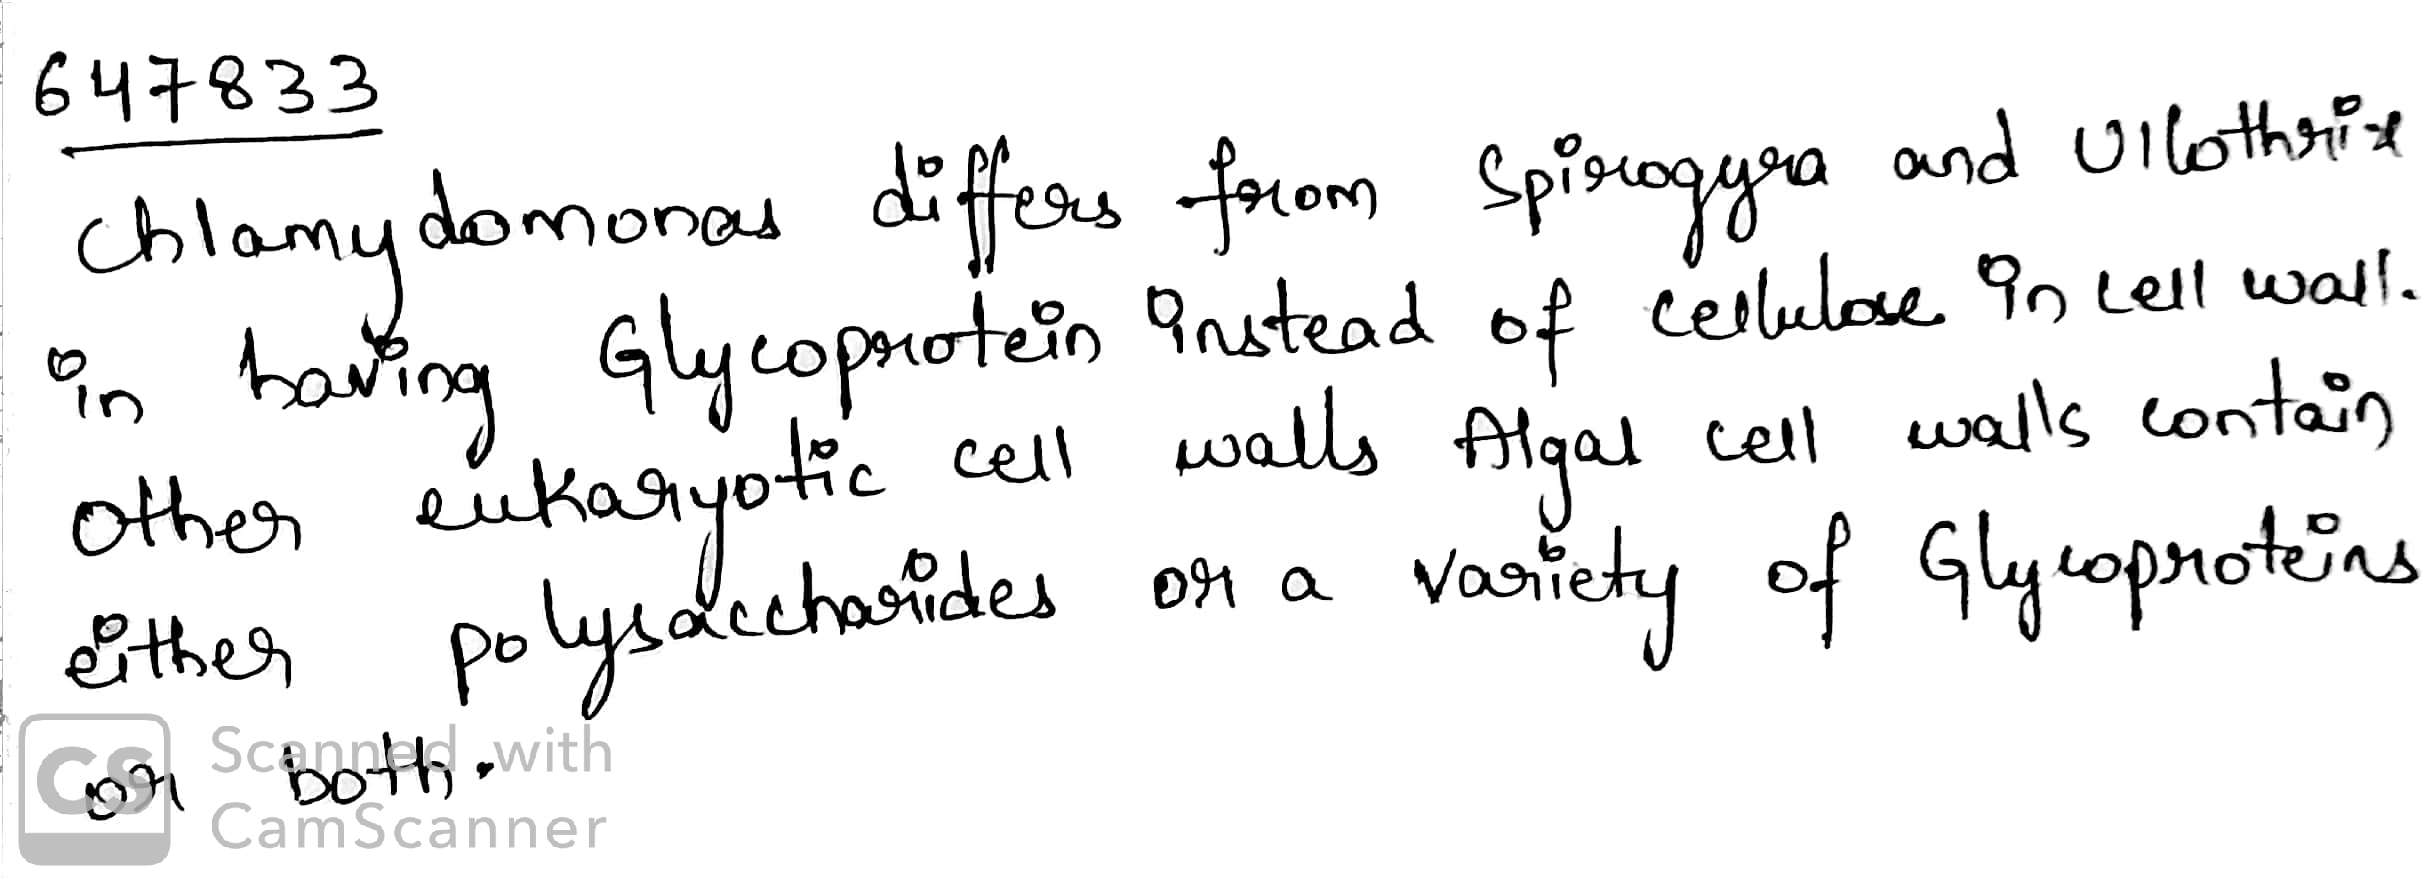 647833
Chlamydomonas differs from Spirogyra and Ulothrix
in having Glycoprotein instead of cellulose in cell wall.
Other eukaryotic cell walls Algal cell walls contain
either polysaccharides or a variety of Glycoproteins
or both.
CS Scanned with
CamScanner